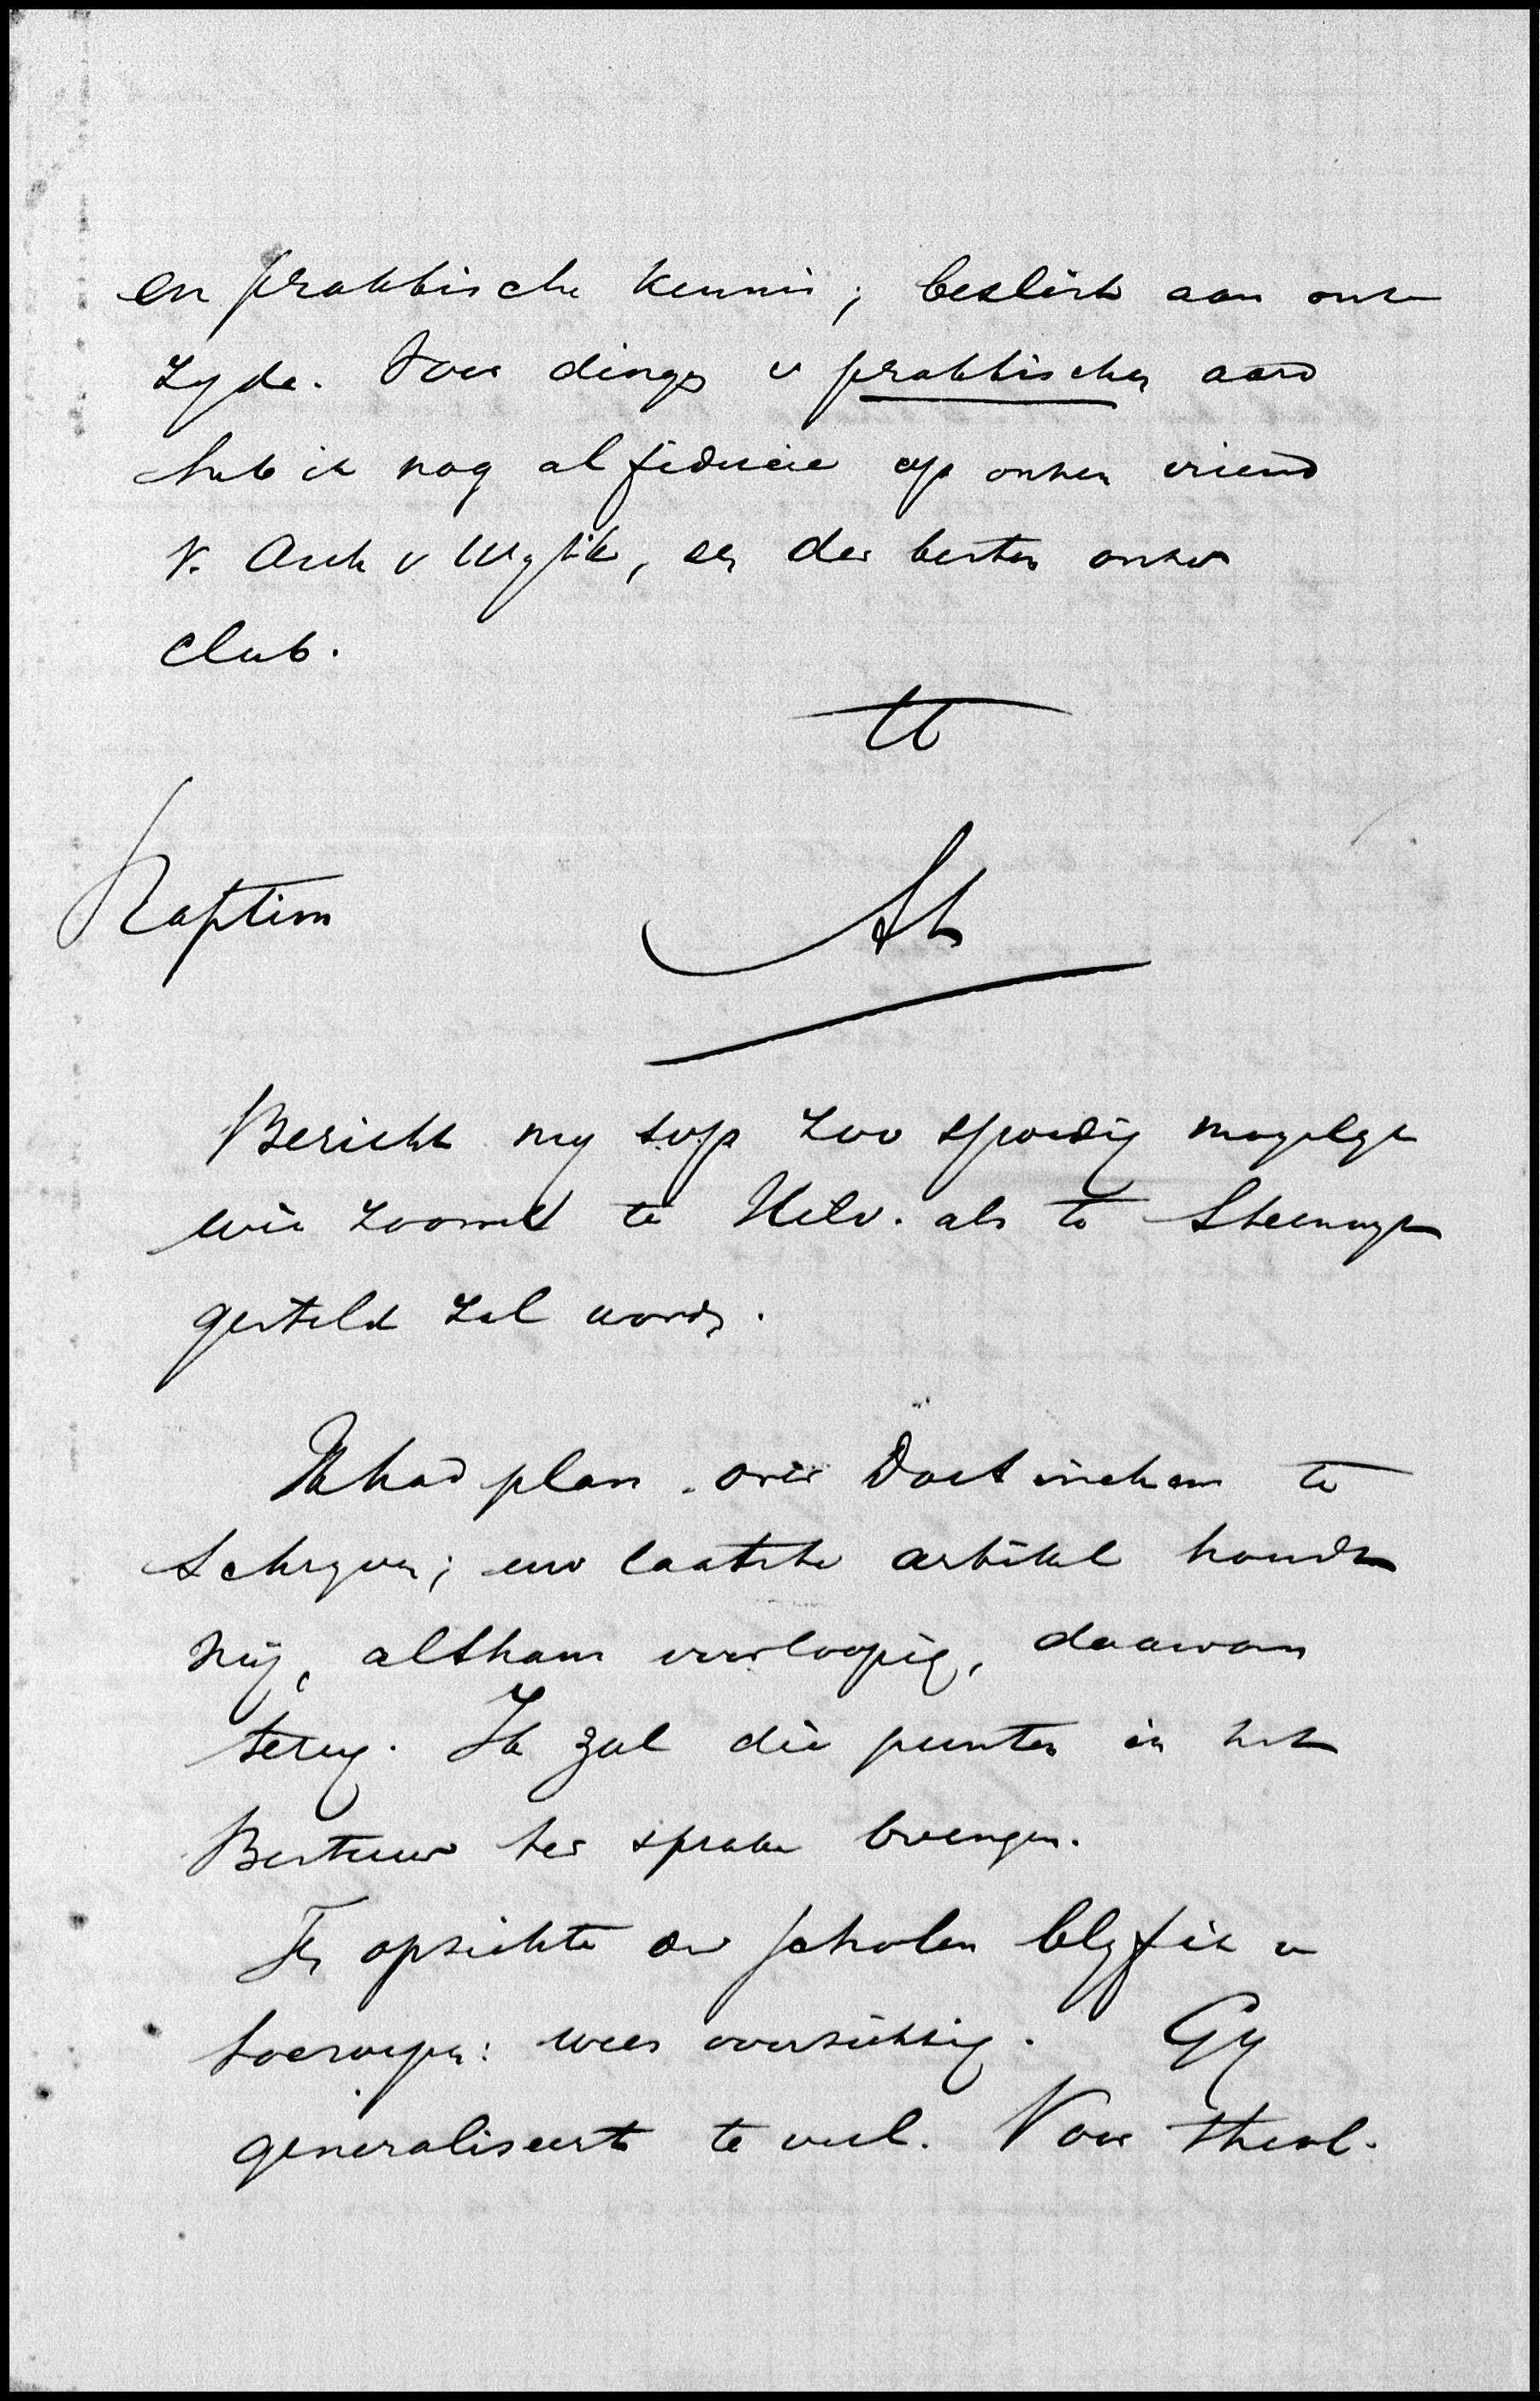 en praktische kennis; beslist aan onze
zyde. Voor dingen v praktischen aard
heb ik nog al fiducie op onzen vriend
v. Asch v Wyck, een der besten onzer
club.
tt
Raptim
Bericht my svp zoo spoedig mogelyk
wie zoowel te Hilv. als te Steenwyk
gesteld zal worden.
Ik had plan over Doetinchem te
schryven; uw laatste artikel houdt
mij, althans voorloopig, daarvan
terug. Ik zal die punten in het
Bestuur ter sprake brengen.
Ten opzichte der scholen blyf ik u
toeroepen: wees voorzichtig. Gy
generaliseert te veel. Voor theol.